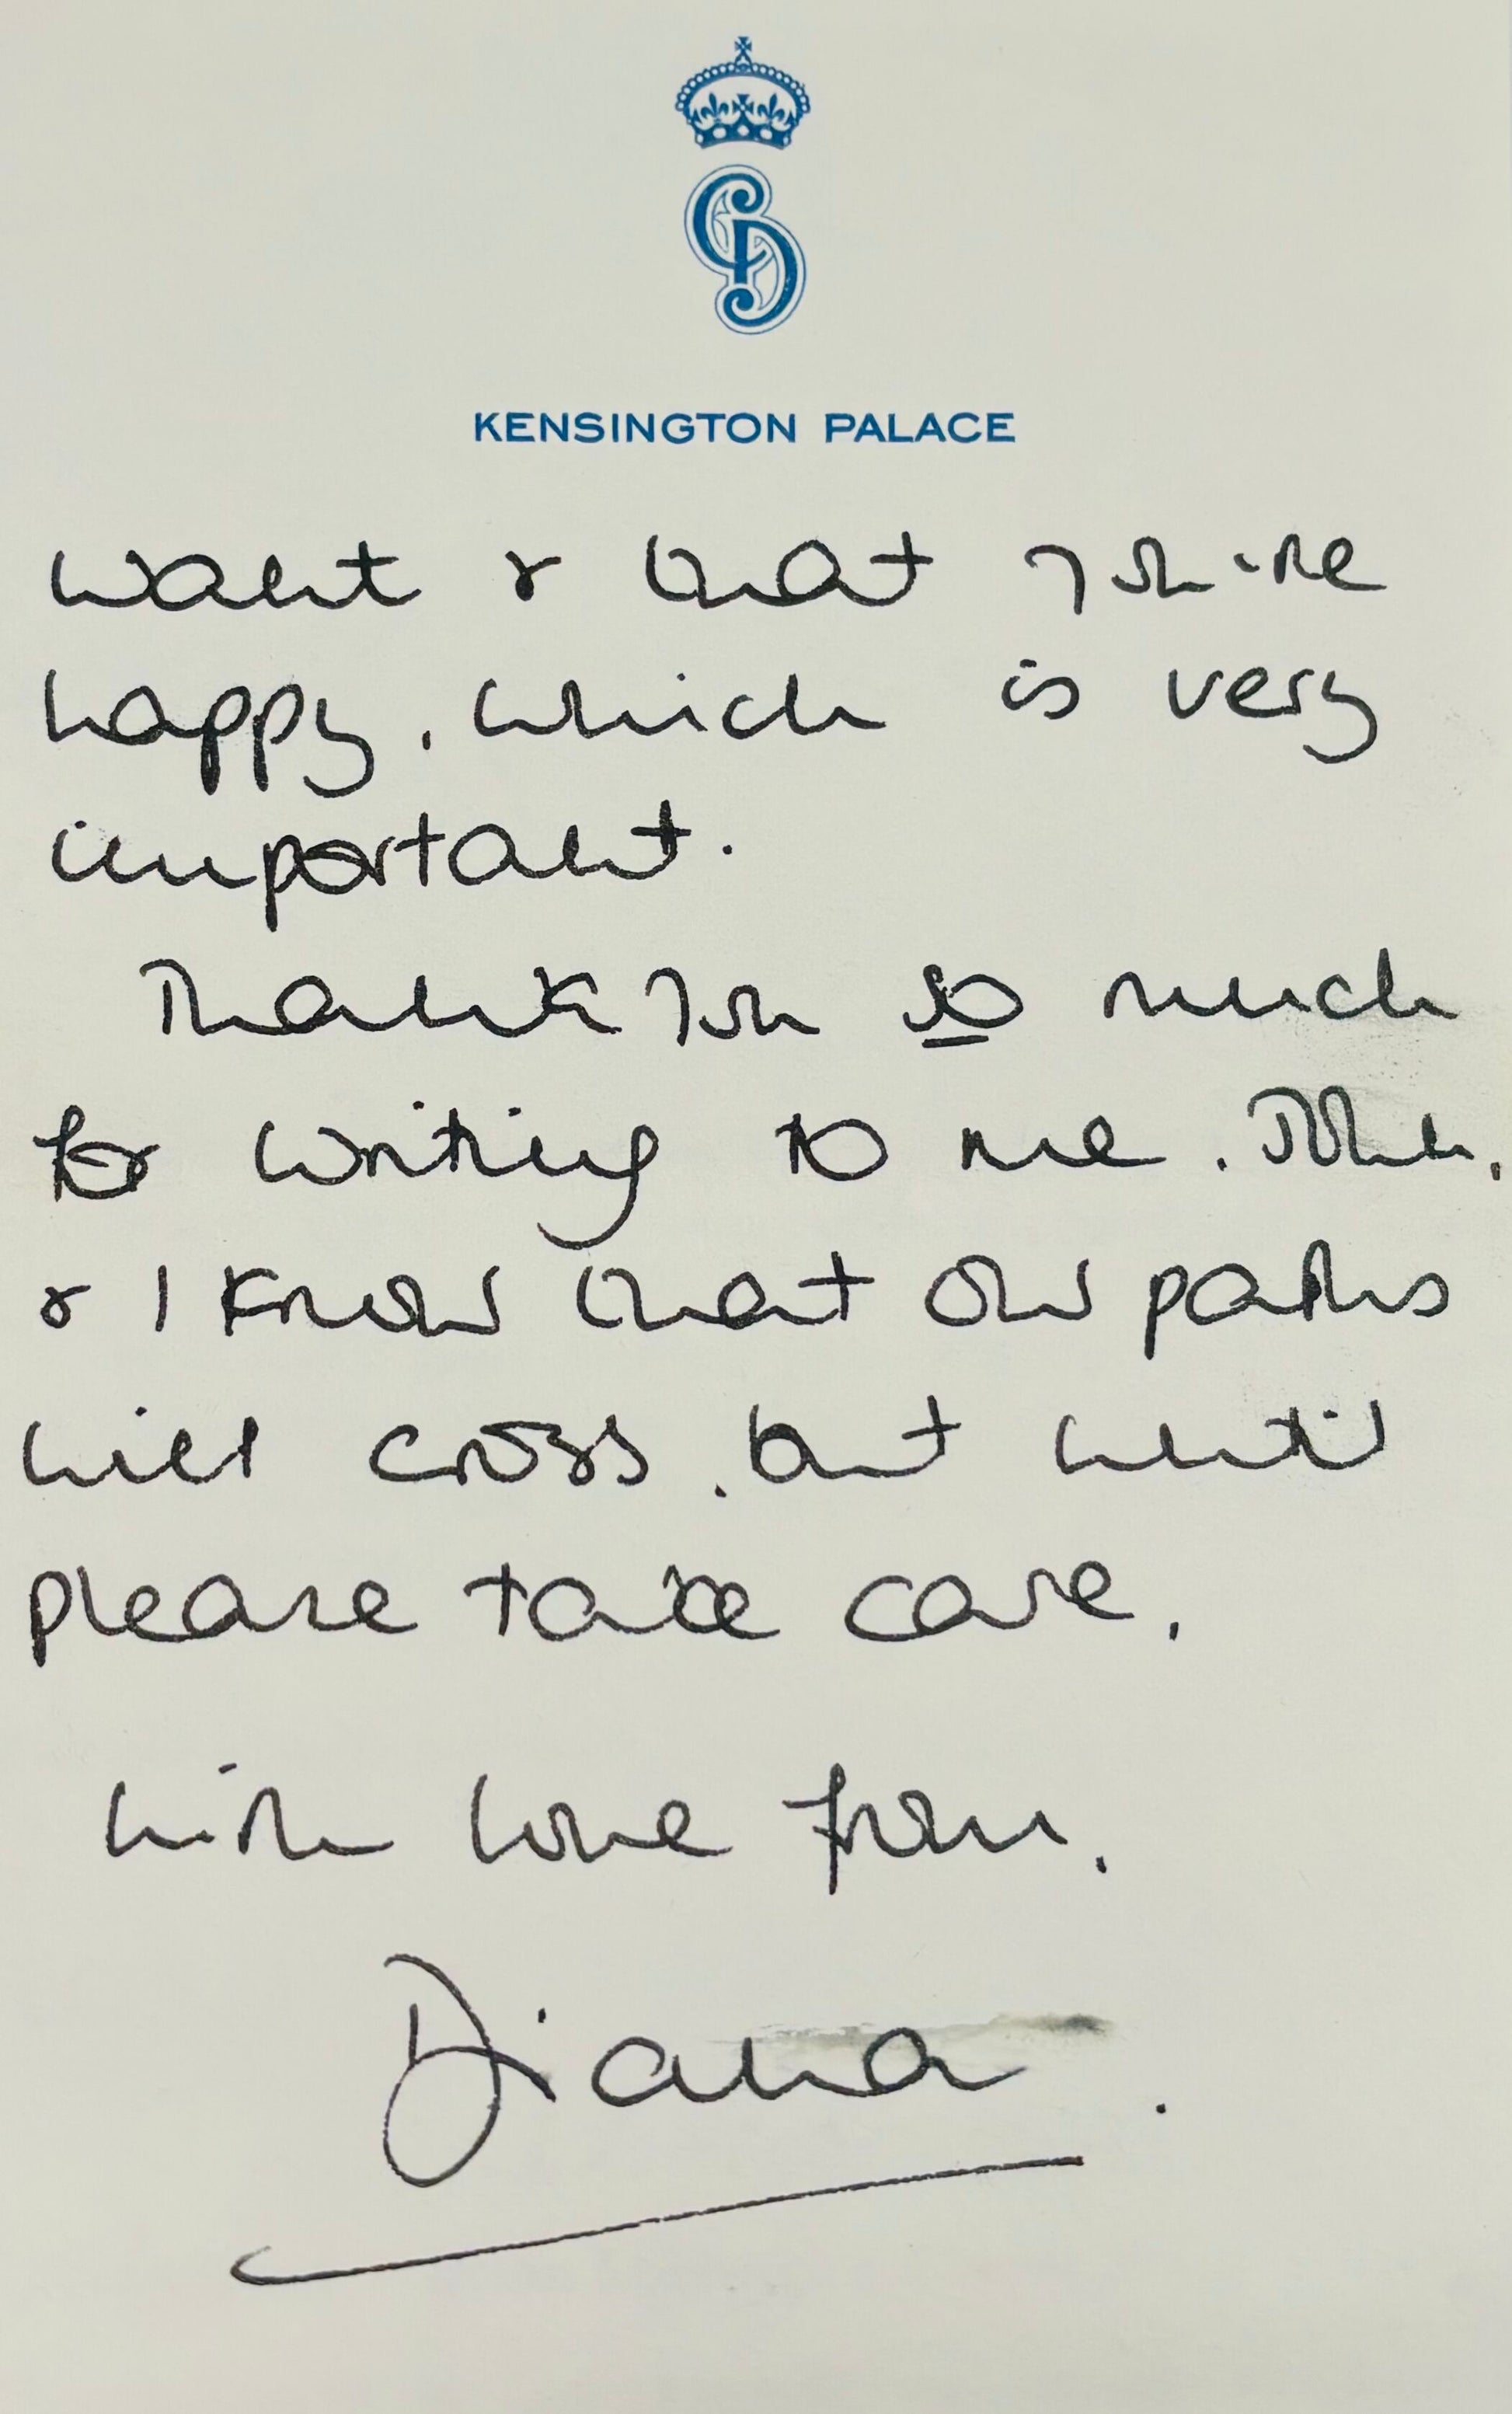 CD
KENSINGTON PALACE
want & that you're
happy, which is very
important.
Thank you so much
for writing to me. John,
& I know that our paths
will cross, but until
please take care,
with love from,
Diana.